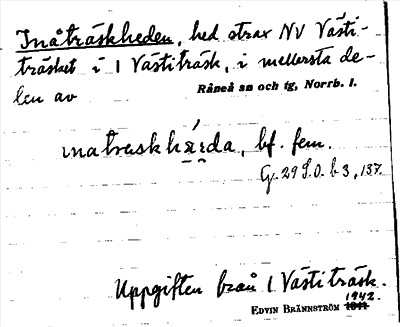 Inåträskheden, hed strax NV Västi-
träsket i 1 Västiträsk, i mellersta de-
len av
Råneå sn och tg, Norrb. l.
bf. fem.
Gr. 29 S.O. b 3, 137.
Uppgiften från 1 Västiträsk.
1942.
EDVIN BRÄNNSTRÖM 1941